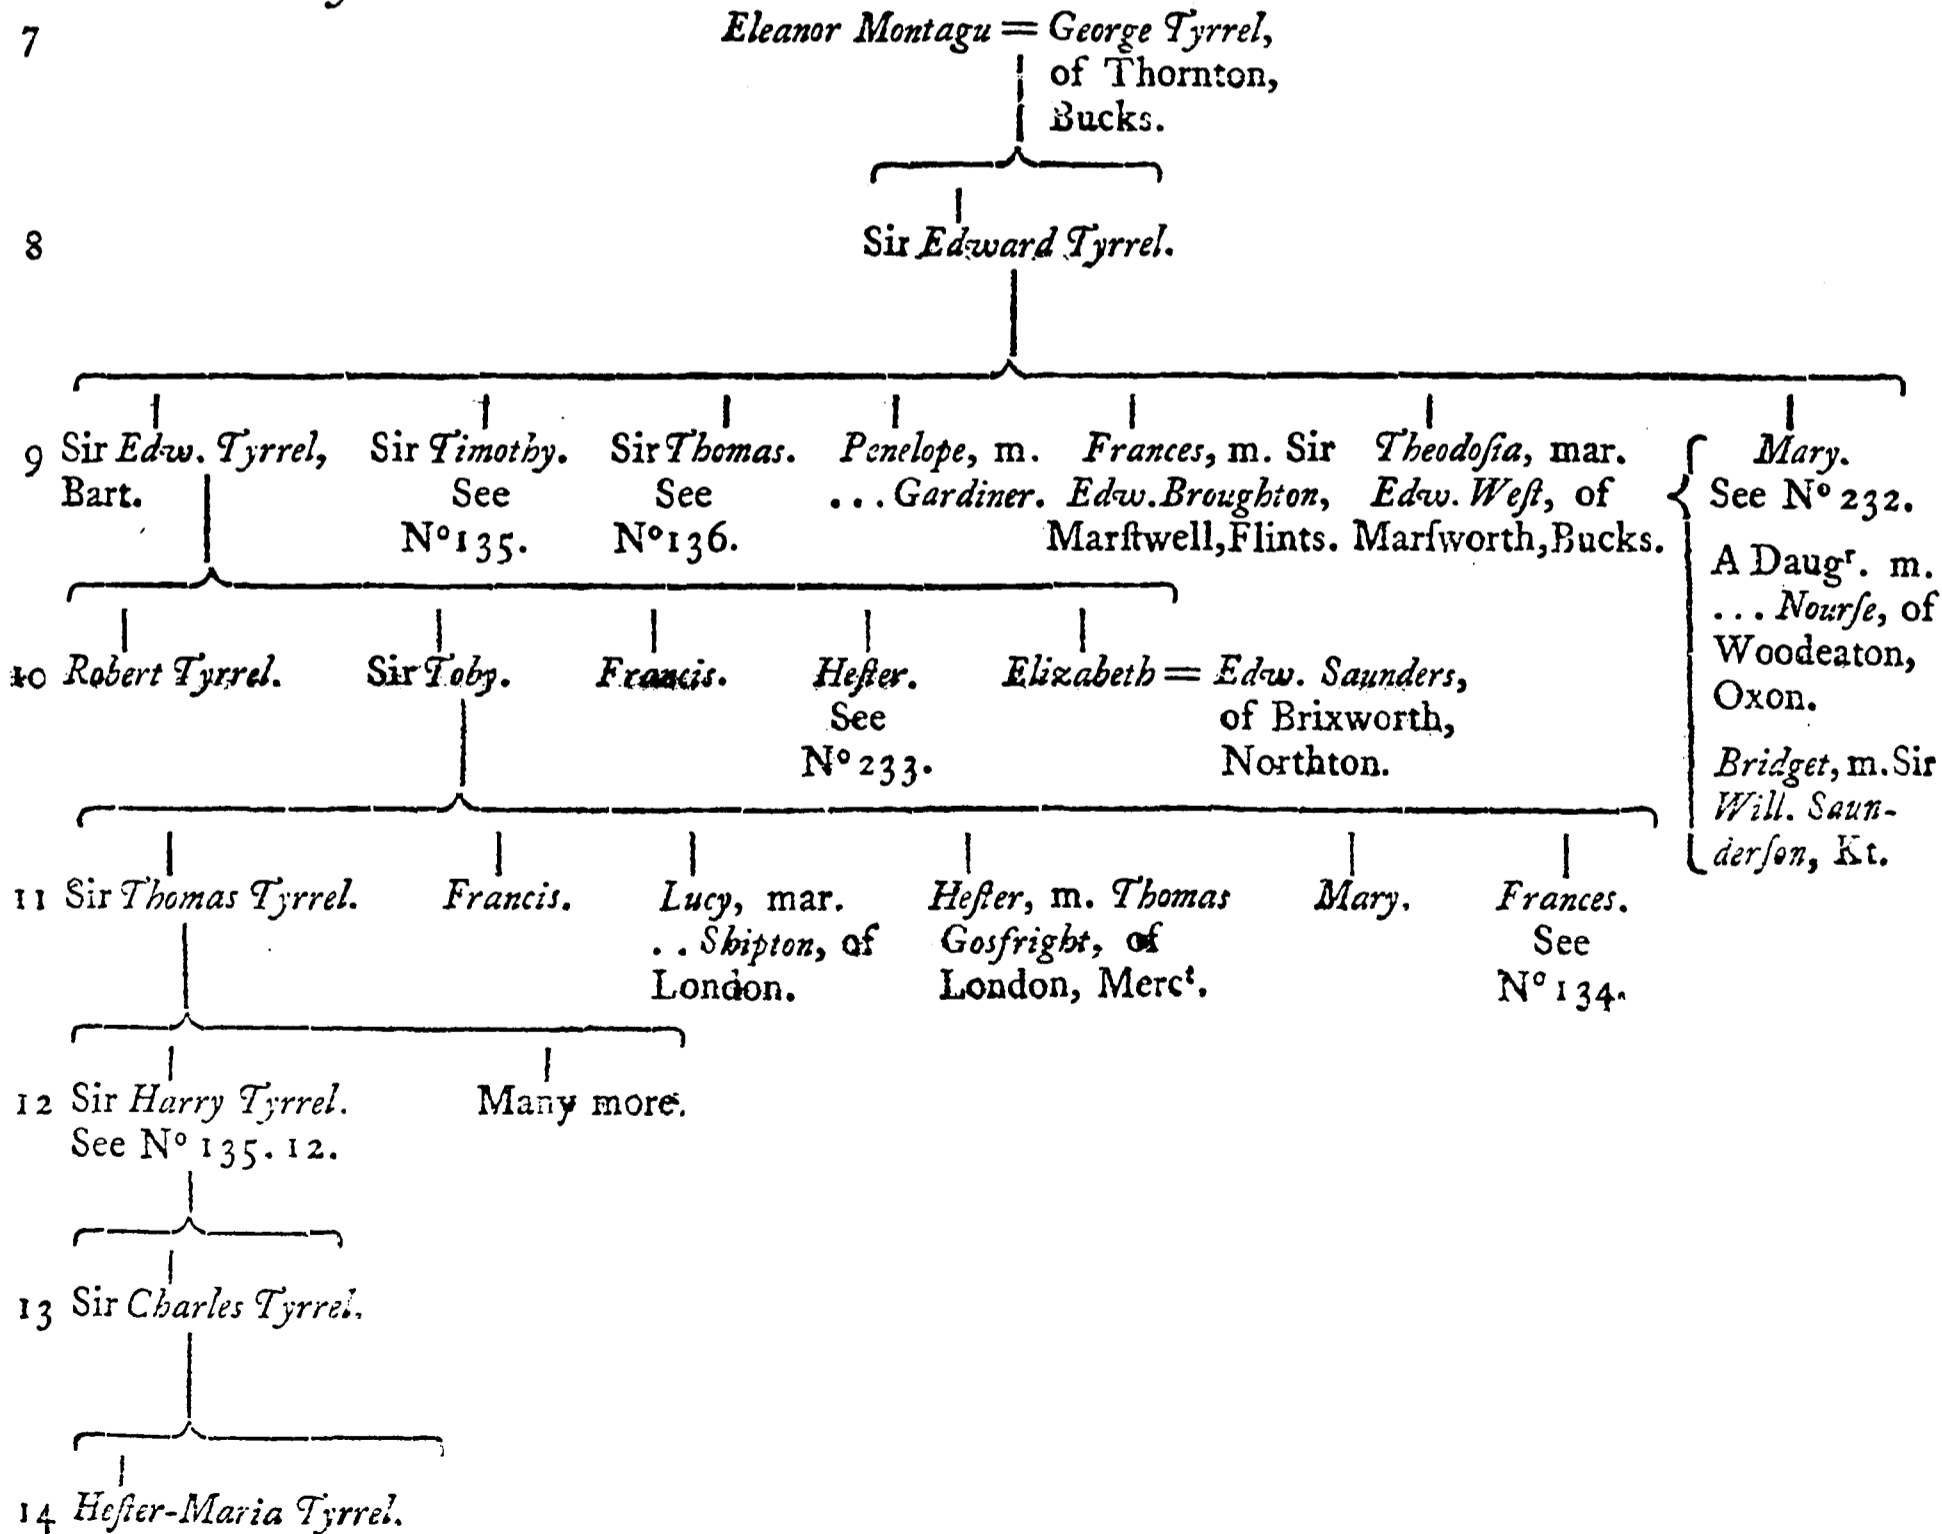 7 Eleanor Montagu = George Tyrrel,
of Thornton,
Bucks.
8 Sir Edward Tyrrel.
9 Sir Edw. Tyrrel,
Bart.
Sir Timothy.
See
Nº 135.
Sir Thomas.
See
Nº 136.
Penelope, m.
... Gardiner.
Frances, m. Sir
Edw. Broughton,
Marſtwell, Flints.
Theodoſia, mar.
Edw. Weſt, of
Marſworth, Bucks.
Mary.
See Nº 232.
A Daugʳ. m.
... Nourſe, of
Woodeaton,
Oxon.
Bridget, m. Sir
Will. Saun-
derſon, Kt.
10 Robert Tyrrel.
Sir Toby.
Francis.
Heſter.
See
Nº 233.
Elizabeth = Edw. Saunders,
of Brixworth,
Northton.
11 Sir Thomas Tyrrel.
Francis.
Lucy, mar.
.. Skipton, of
London.
Heſter, m. Thomas
Gosfright, of
London, Mercᵗ.
Mary.
Frances.
See
Nº 134.
12 Sir Harry Tyrrel.
See Nº 135. 12.
Many more.
13 Sir Charles Tyrrel.
14 Heſter-Maria Tyrrel.